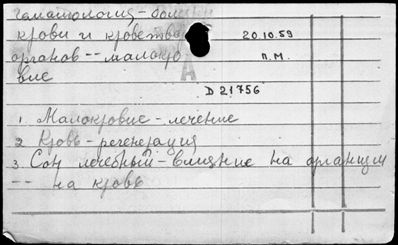 гематология - бол
крови и кроветво
20.10.59
органов -- малокро
п.м.
вие
D 21756
1. Малокровие - лечение
2. Кровь - регенерация
3. Сон лечебный - влияние на организм
-- на кровь